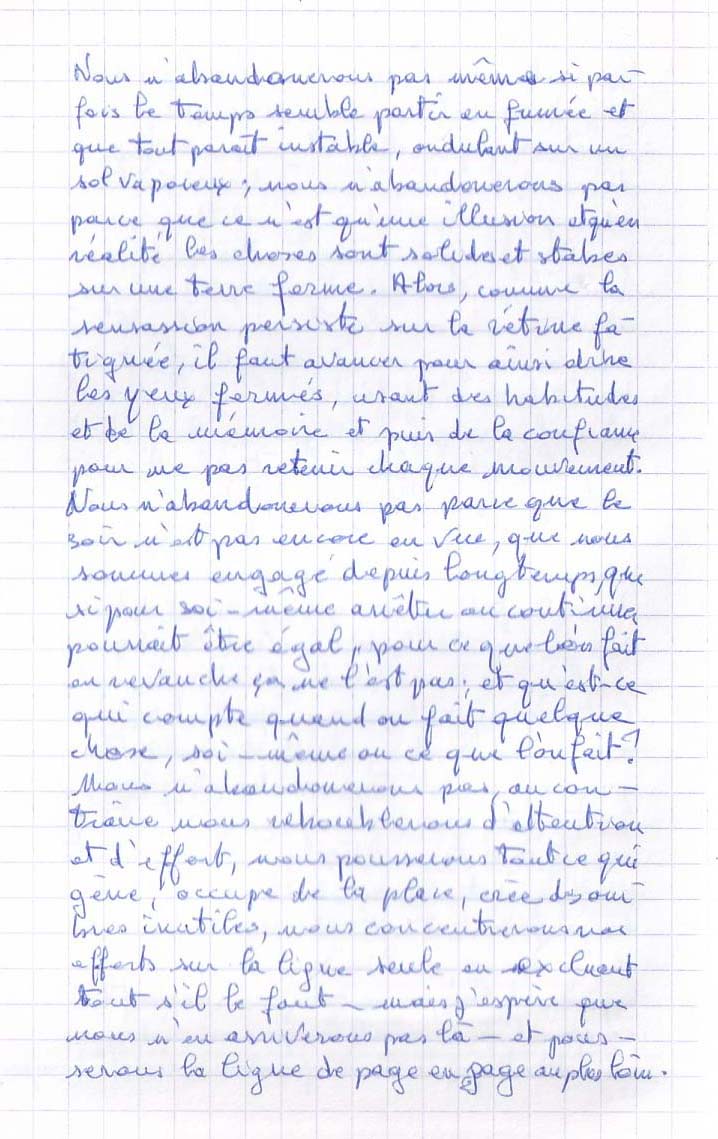 Nous n'abandonnerons pas même si par-
fois le temps semble partir en fumée et
que tout paraît instable, ondulant sur un
sol vaporeux ; nous n'abandonerons pas
parce que ce n'est qu'une illusion et qu'en
réalité les choses sont solides et stables
sur une terre ferme. Alors, comme la
sensassion persiste sur la rétine fa-
tiguée, il faut avancer pour ainsi dire
les yeux fermés, usant des habitudes
et de la mémoire et puis de la confiance
pour ne pas retenir chaque mouvement.
Nous n'abandonerons pas parce que le
soir n'est pas encore en vue, que nous
sommes engagé depuis longtemps, que
si pour soi-même arrêter ou continuer
pourrait être égal, pour ce que l'on fait
en revanche ça ne l'est pas ; et qu'est-ce
qui compte quand on fait quelque
chose, soi-même ou ce que l'on fait ?
Nous n'abandonerons pas, au con-
traire nous redoublerons d'attention
et d'effort, nous pousserons tout ce qui
gêne, occupe de la place, crée des om-
bres inutiles, nous concentrerons nos
efforts sur la ligne seule en excluent
tout s'il le faut - mais j'espère que
nous n'en arriverons pas là - et pous-
serons la ligne de page en page au plus loin.